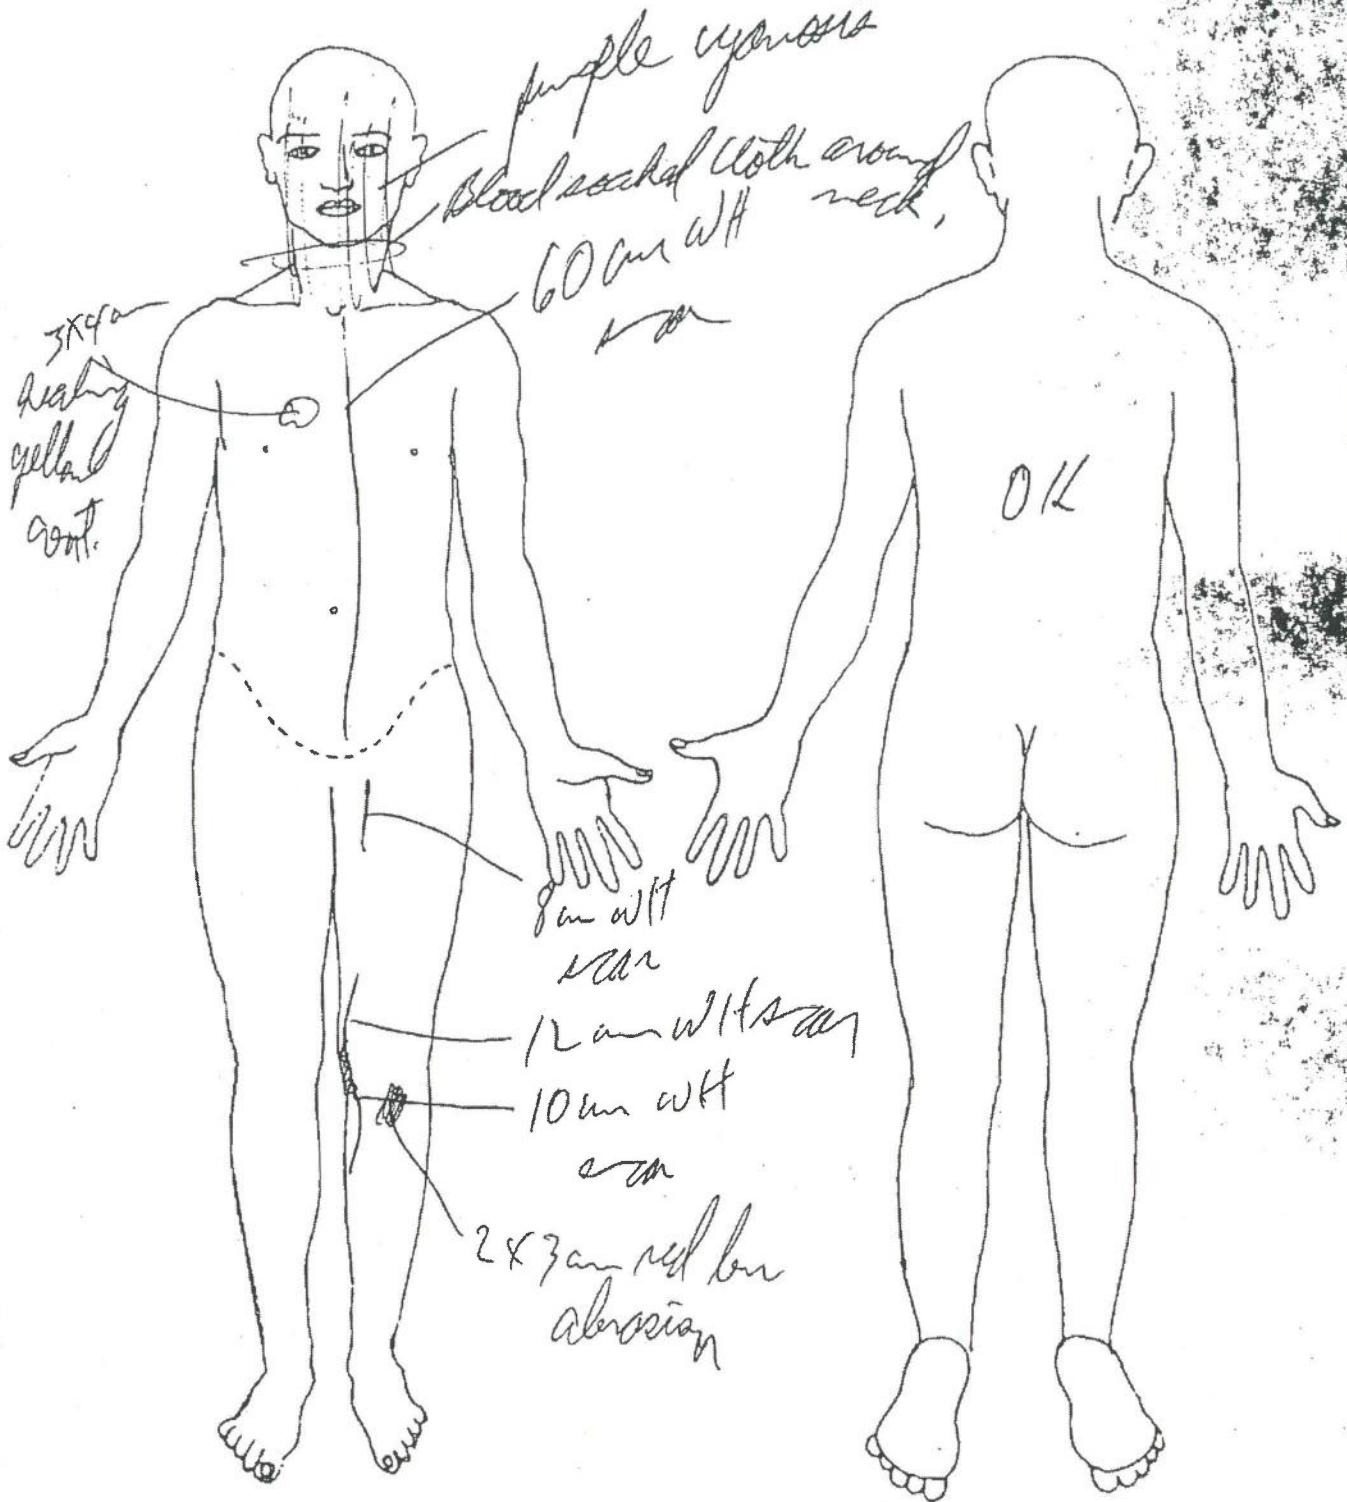 purple cyanosis
Blood soaked cloth around
neck,
60 cm WH
scar
3X4 cm
healing
yellow
cont.
OK
8 cm WH
scar
12 cm WH scar
10 cm WH
scar
2 X 3 cm red brn
abrasion